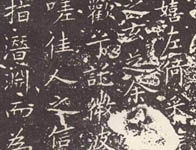 嬉左倚采
之玄芝余
歡兮託微波
嗟佳人之信
指潛淵而為